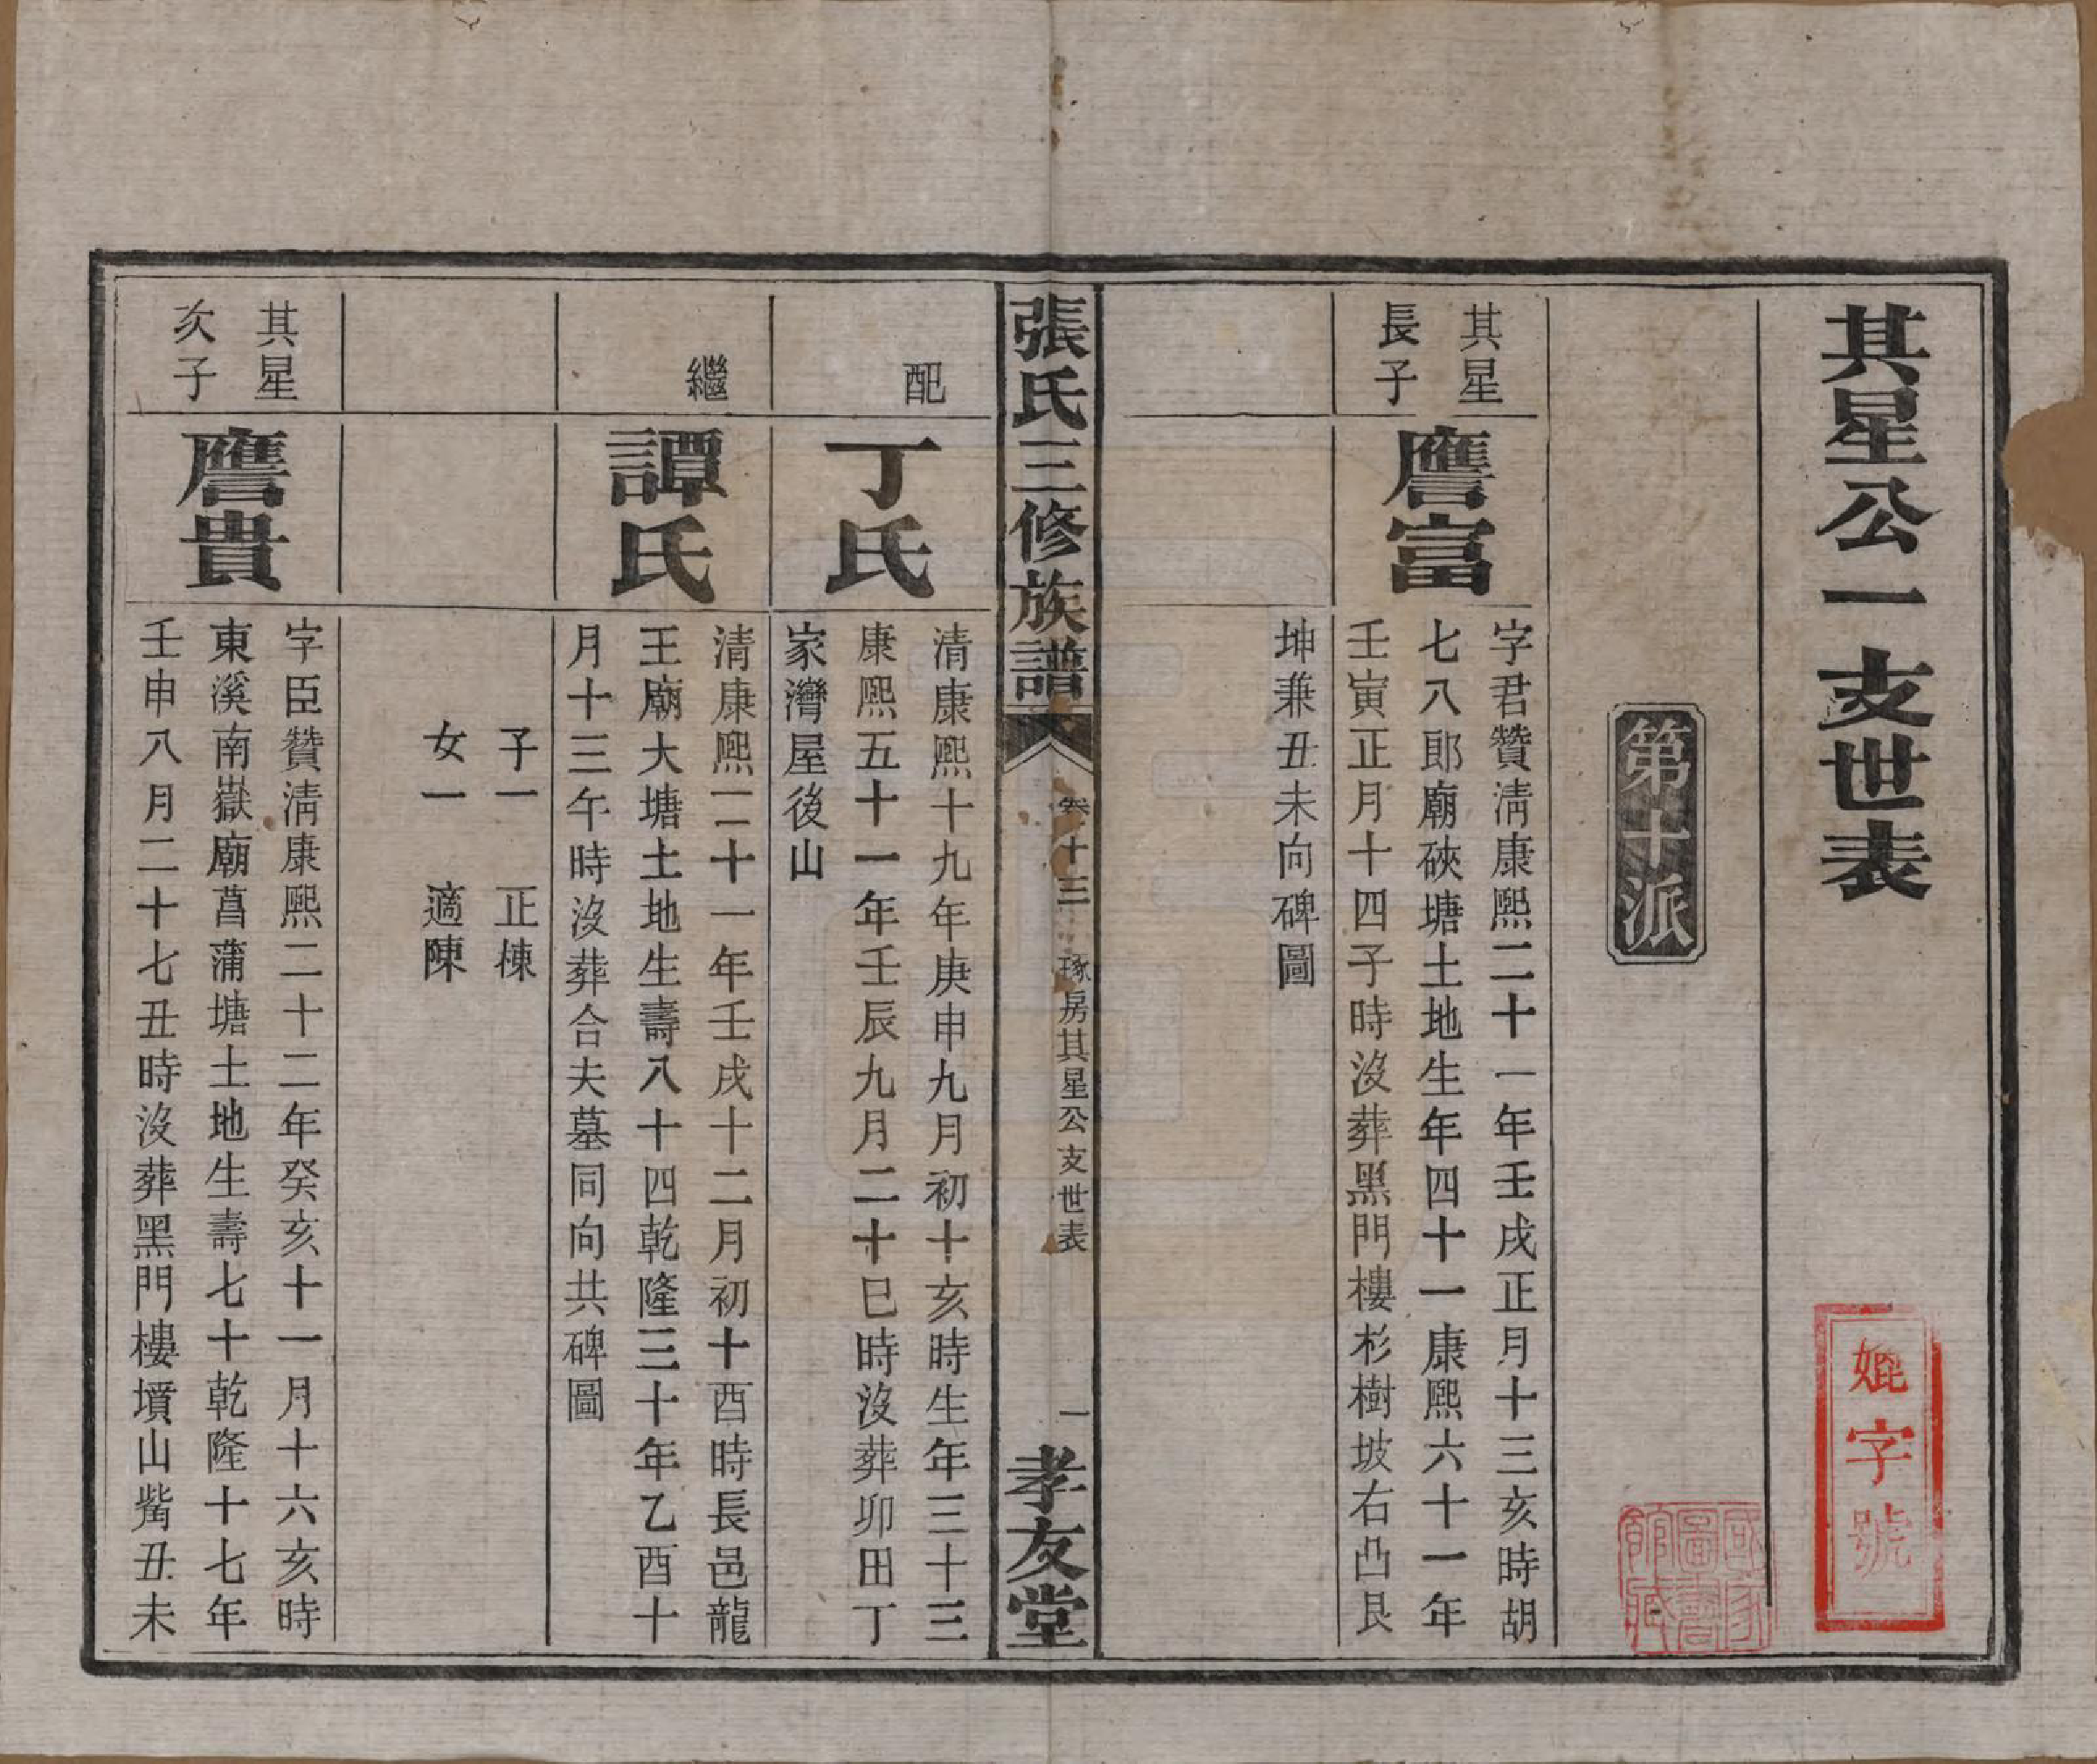 其星公一支世表
媲字號
國家圖書館藏
第十派
其星
長子
譍富
字君贊淸康熙二十一年壬戌正月十三亥時胡
七八郎廟硤塘土地生年四十一康熙六十一年
壬寅正月十四子時沒葬黑門樓杉樹坡右凸艮
坤兼丑未向碑圖
張氏三修族譜
卷十三
琢房其星公支世表
一
孝友堂
配
丁氏
清康熙十九年庚申九月初十亥時生年三十三
康熙五十一年壬辰九月二十巳時沒葬卯田丁
家灣屋後山
繼
譚氏
清康熙二十一年壬戌十二月初十酉時長邑龍
王廟大塘土地生壽八十四乾隆三十年乙酉十
月十三午時沒葬合夫墓同向共碑圖
子一 正棟
女一 適陳
其星
次子
譍貴
字臣贊淸康熙二十二年癸亥十一月十六亥時
東溪南嶽廟菖蒲塘土地生壽七十乾隆十七年
壬申八月二十七丑時沒葬黑門樓墳山觜丑未